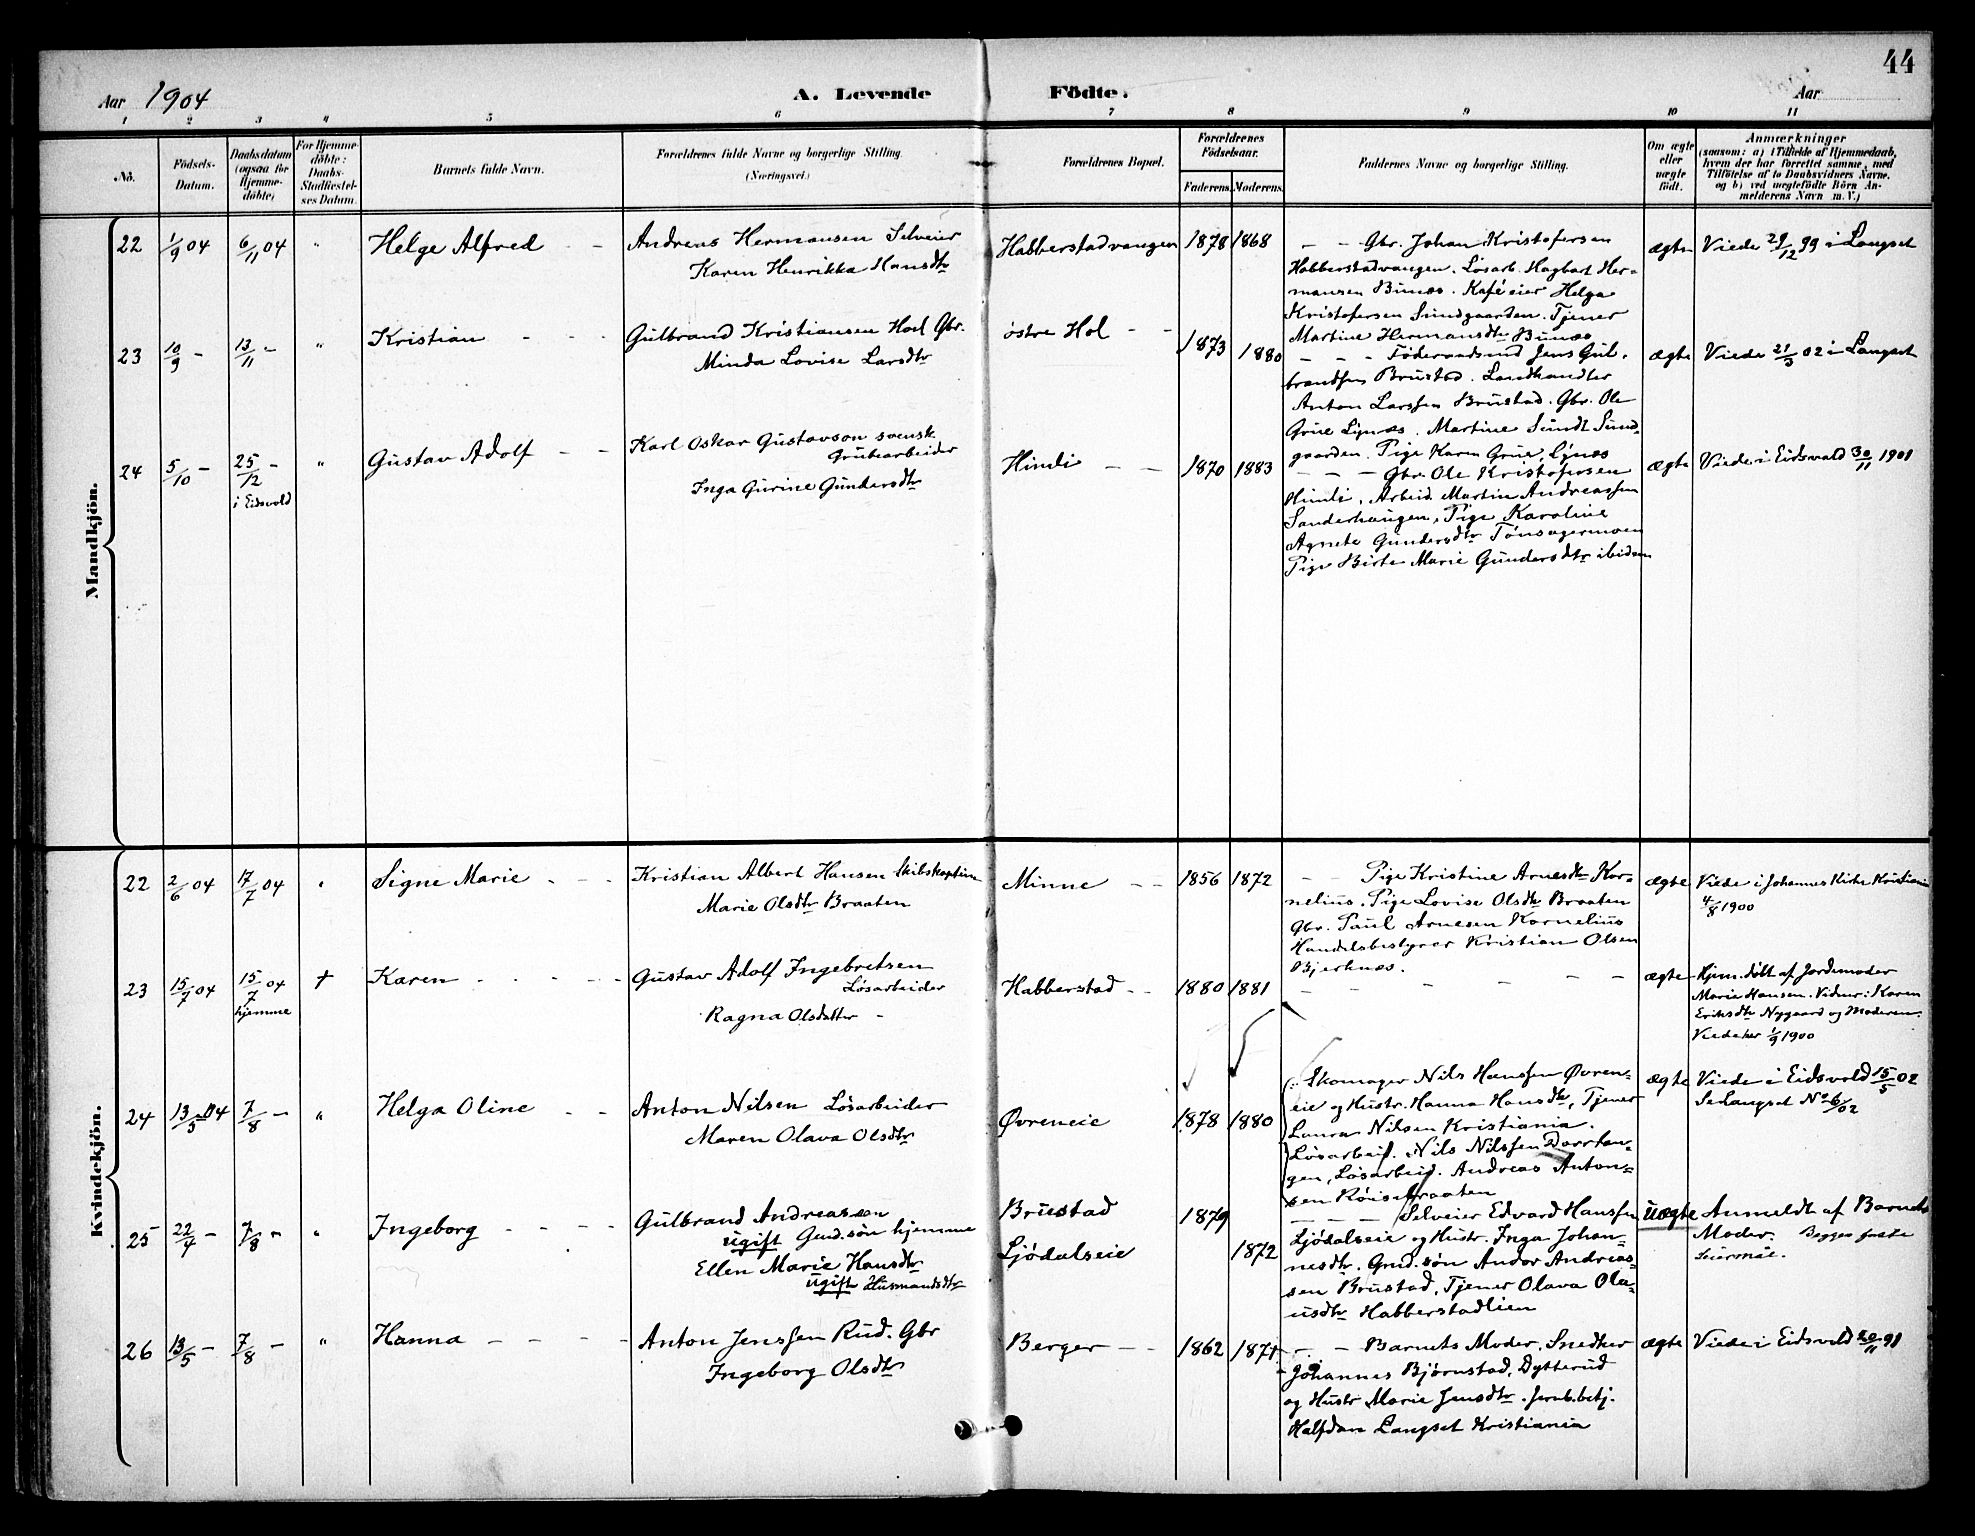 44
Aar 1904
A. Levende Födte.
Aar
1 2 3 4 5 6 7 8 9 10 11
No.
Födsels-
Datum.
Daabsdatum
(ogsaa for
Hjemme-
döbte)
For Hjemme-
döbte:
Daabs-
Stadfæstel-
ses Datum.
Barnets fulde Navn.
Forældrenes fulde Navne og borgerlige Stilling
(Næringsvei.)
Forældrenes Bopæl.
Forældrenes
Födselsaar.
Faderens. Moderens.
Faddernes Navne og borgerlige Stilling.
Om ægte
eller
uægte
födt.
Anmærkninger
(saasom: a) i Tilfælde af Hjemmedaab,
hvem der har forrettet samme, med
Tilföielse af to Daabsvidners Navne,
og b) ved uægtefödte Börn An-
melderens Navn m. V.)
Mandkjön.
22 1/9 04 6/11 04 " Helge Alfred - -
Andreas Hermansen Selveier
Karen Henrikka Hansdtr
Habberstadvangen 1878 1868
- - Gbr. Johan Kristofersen
Habberstadvangen. Løsarb. Hagbart Her-
mansen Bunæs. Kaféeier Helga
Kristofersen Sundgaarden. Tjener
Martine Hermansdtr Bunæs
ægte Viede 29/12 99 i Langset
23 10/9 - 13/11 - " Kristian - - -
Gulbrand Kristiansen Hol Gbr.
Minda Lovise Larsdtr
østre Hol - - 1873 1880
- - - Føderaadsmd Jens Gul-
brandsen Brustad. Landhandler
Anton Larssen Brustad. Gbr. Ole
Grue Lynæs. Martine Sundt Sund-
gaarden. Pige Karen Grue, Lynæs
ægte Viede 21/3 02 i Langset
24 5/10 - 25/12 - " Gustav Adolf - -
i Eidsvold
Karl Oskar Gustavson svensk
Grubearbeider
Inga Gurine Gundersdtr
Himli - - 1870 1883
- - - Gbr. Ole Kristofersen
Himli, Arbeid. Martin Andreassen
Sanderhaugen, Pige Karoline
Agnete Gundersdtr Tønsagermoen
Pige Birte Marie Gundersdtr ibidem
ægte Viede i Eidsvold 30/11 1901
Kvindekjön.
22 2/6 04 17/7 04 " Signe Marie - - -
Kristian Albert Hansen Skibskaptein
Marie Olsdtr Braaten
Minne - - 1856 1872
- - Pige Kristine Arnesdtr Kor-
nelius. Pige Lovise Olsdtr Braaten
Gbr. Paul Arnesen Kornelius
Handelsbestyrer Kristian Olsen
Bjerknæs.
ægte Viede i Johannes Kirke Kristiania
4/8 1900
23 15/7 04 15/7 04 † Karen - - - -
hjemme
Gustav Adolf Ingebretsen
Løsarbeider
Ragna Olsdatter -
Habberstad - - 1880 1881
- - - - - -
ægte Hjem. døbt af Jordemoder
Marie Hansen. Vidner: Karen
Eriksdtr Nygaard og Moderen.
Viede her 1/9 1900
24 13/5 04 7/8 - " Helga Oline - -
Anton Nilsen Løsarbeider
Maren Olava Olsdtr
Øvreneie 1878 1880
Skomager Nils Hanssen Øvren-
eie og Hustr. Hanna Hansdtr, Tjener
Laura Nilsen Kristiania.
Løsarbeid. Nils Nilssen Dorrtan-
gen, Løsarbeid. Andreas Anton-
sen Røisebraaten
ægte Viede i Eidsvold 15/5 02
Se Langset No 6/02
25 22/4 - 7/8 - " Ingeborg - - - -
Gulbrand Andreassen
ugift Gmd.søn hjemme
Ellen Marie Hansdtr
ugift Husmandsdtr
Brustad
Ljødalseie
1879
1872
- - - - Selveier Edvard Hanssen
Ljødalseie og Hustr. Inga Johan-
nesdtr. Gmd.søn Andor Andreas-
sen Brustad, Tjener Olava Ola-
usdtr Habberstadlien
uægte Anmeldt af Barnets
Moder. Begges første
Leiermål.
26 13/5 - 7/8 - " Hanna - - - -
Anton Jenssen Rud. Gbr
Ingeborg Olsdtr
Berger - - 1862 1871
- - Barnets Moder, Snedker
Johannes Bjørnstad, Dytterud
og Hustr Marie Jensdtr. Jernb.betj.
Halfdan Langset Kristiania
ægte Viede i Eidsvold 20/11 91